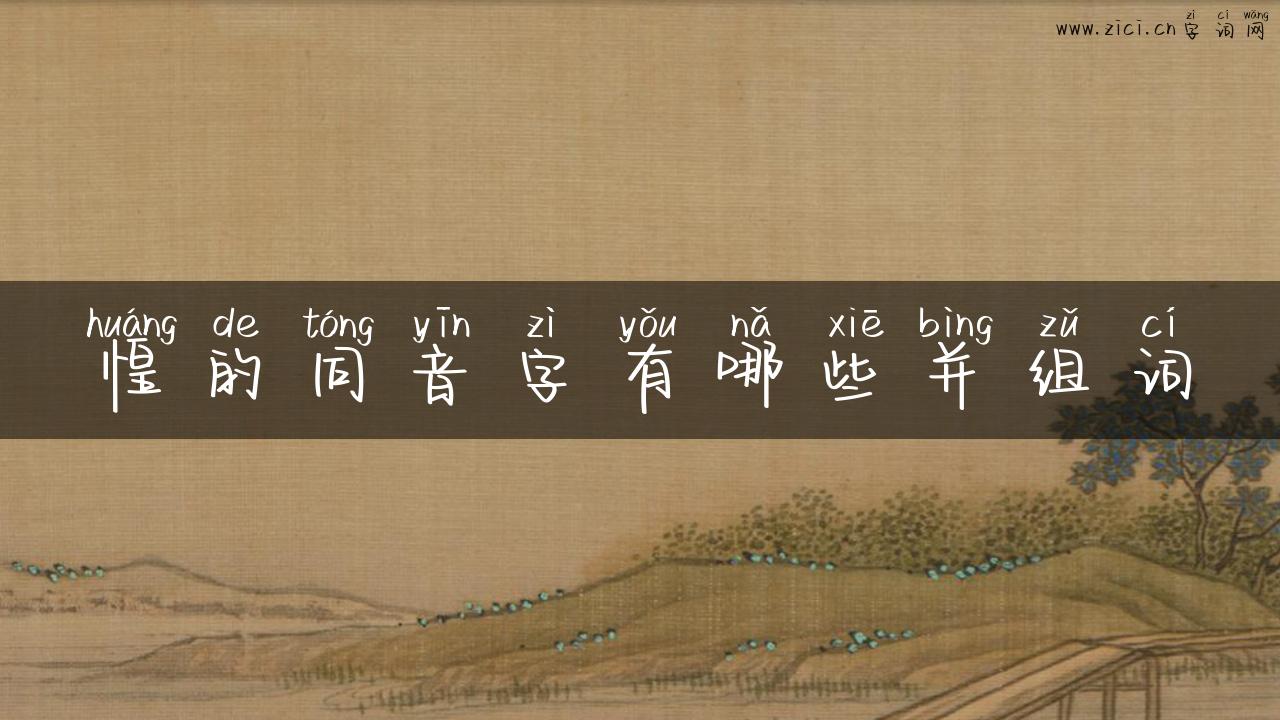 zì cí wǎng
www.zici.cn字词网
huáng de tóng yīn zì yǒu nǎ xiē bìng zǔ cí
惶的同音字有哪些并组词